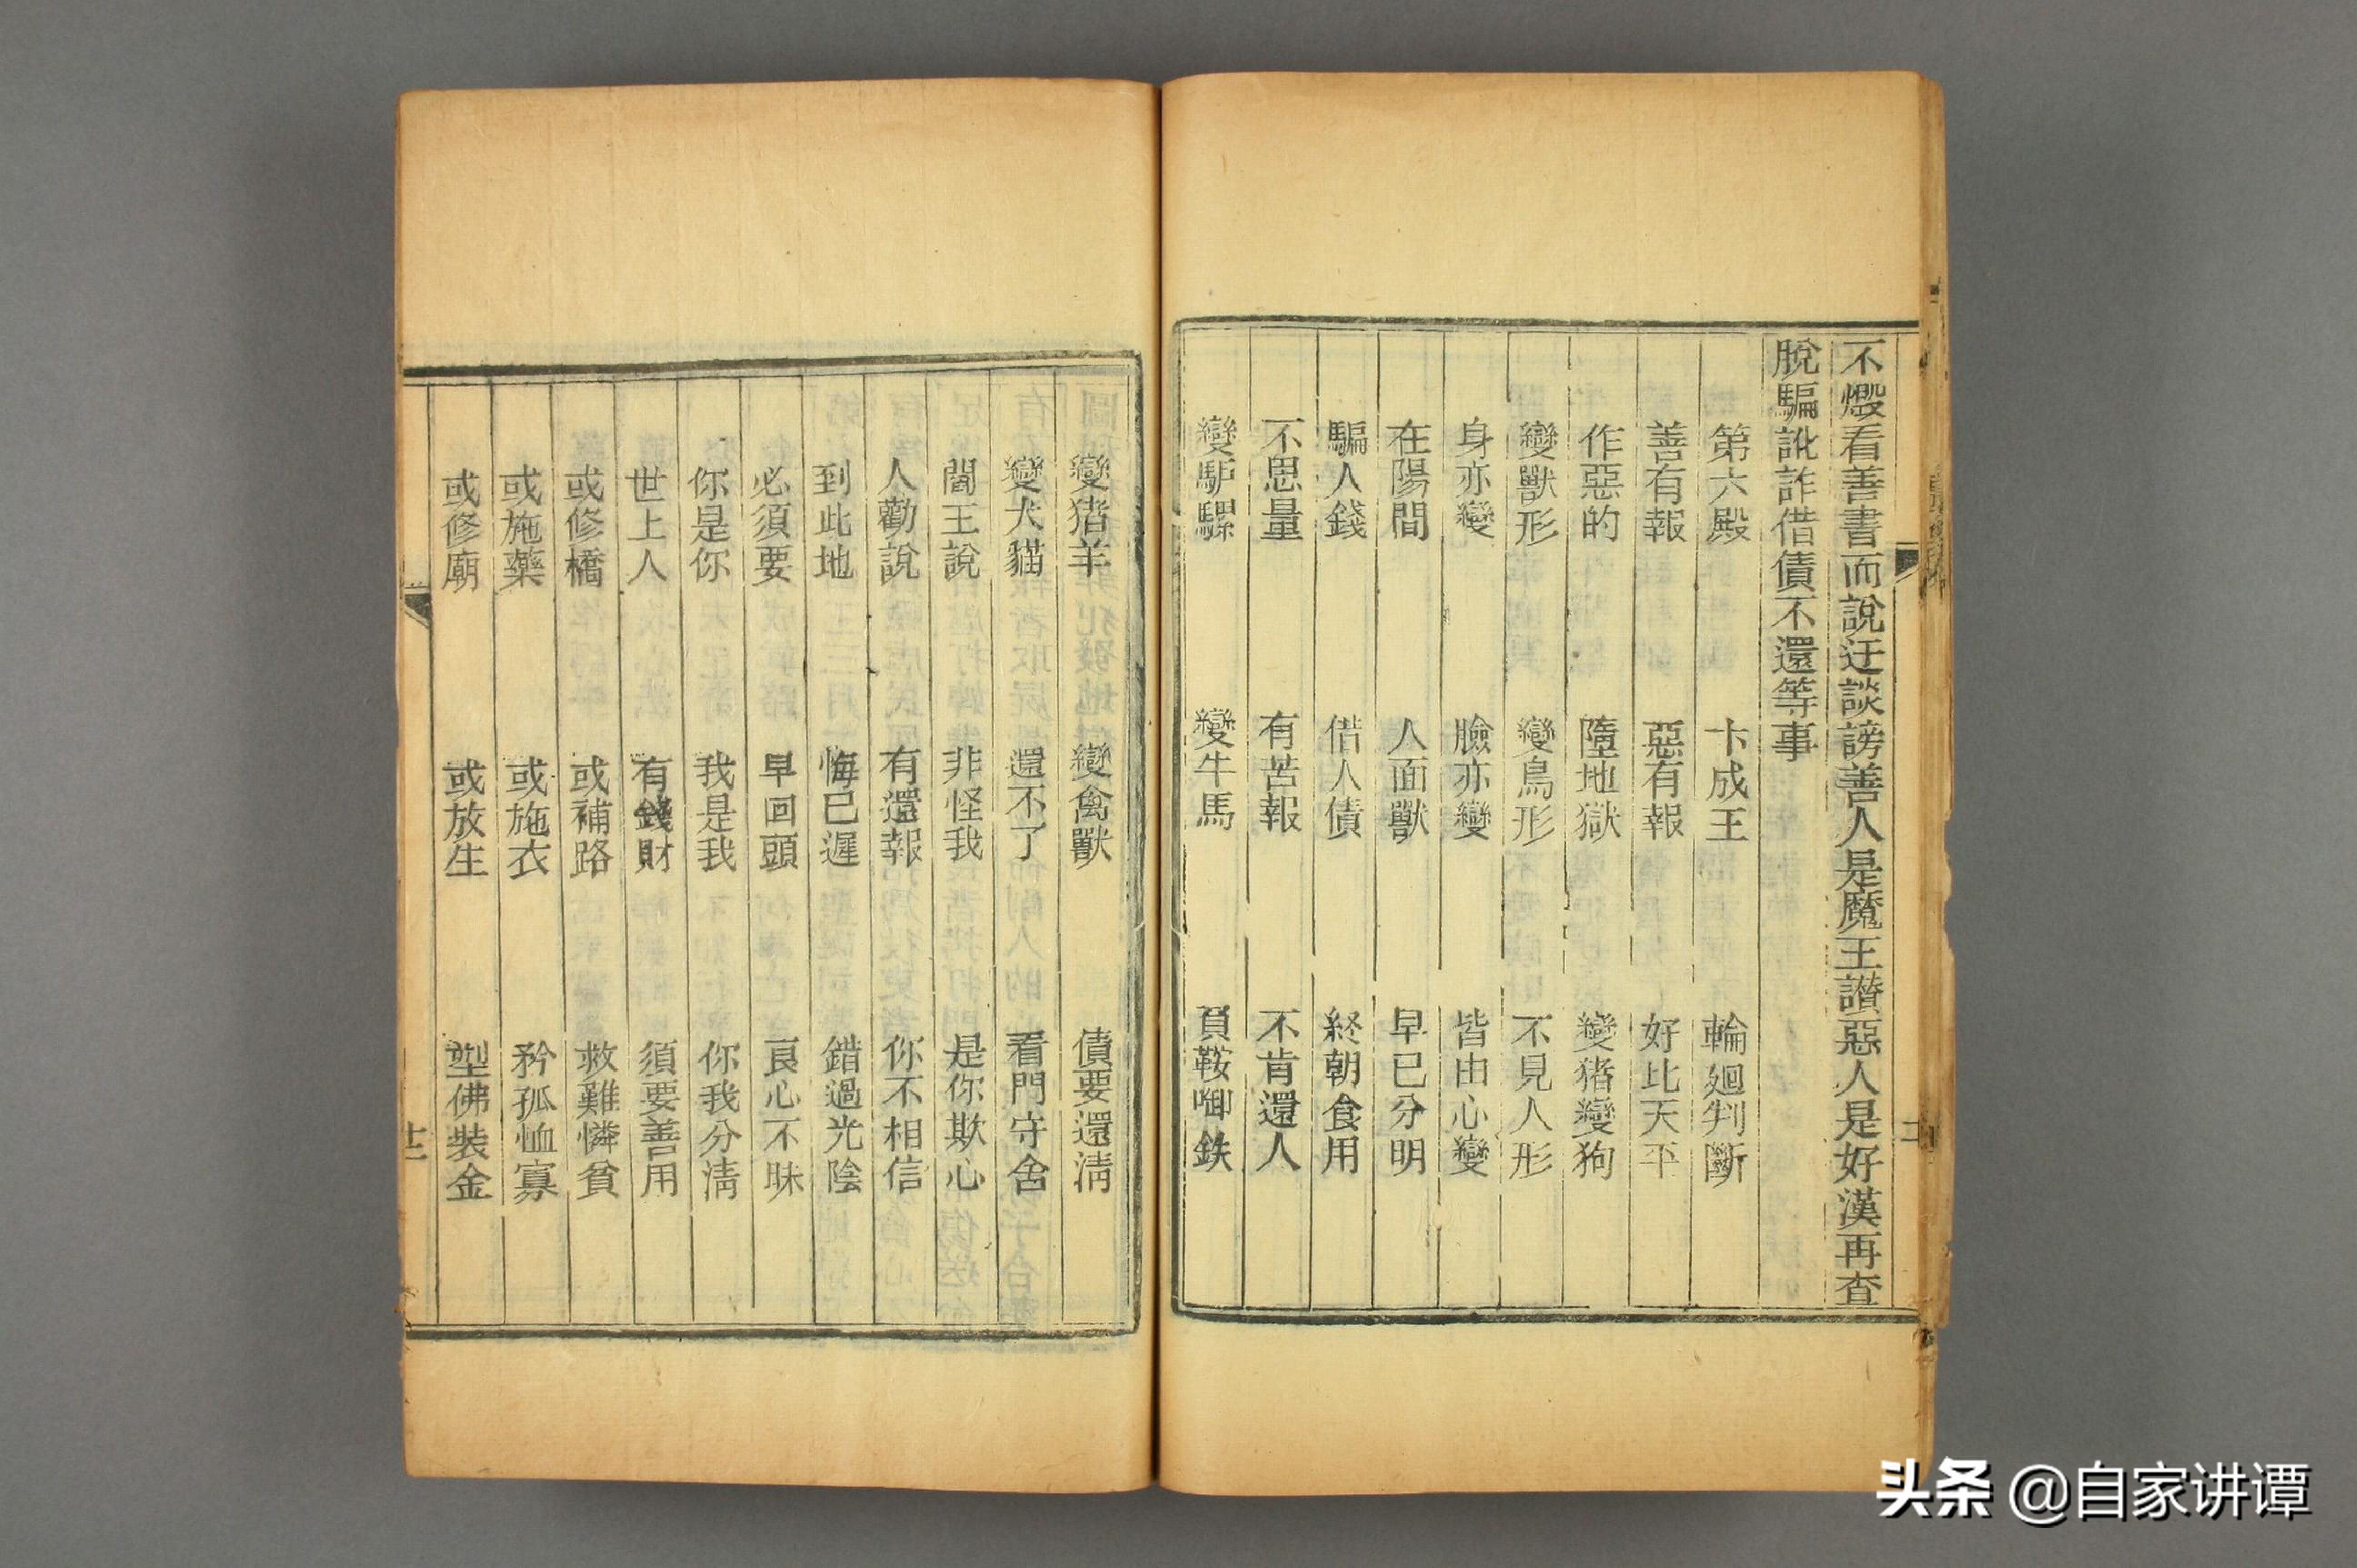 不燬看善書而說迂談謗善人是魔王讃惡人是好漢再查
脫騙訛詐借債不還等事
第六殿 卞成王 輪廻判斷
善有報 惡有報 好比天平
作惡的 墮地獄 變猪變狗
變獸形 變鳥形 不見人形
身亦變 臉亦變 皆由心變
在陽間 人面獸 早已分明
騙人錢 借人債 終朝食用
不思量 有苦報 不肯還人
變馿騾 變牛馬 負鞍啣鉄
變猪羊 變禽獸 債要還淸
變犬貓 還不了 看門守舍
閻王說 非怪我 是你欺心
人勸說 有還報 你不相信
到此地 悔已遲 錯過光陰
必須要 早回頭 良心不昧
你是你 我是我 你我分淸
世上人 有錢財 須要善用
或修橋 或補路 救難憐貧
或施藥 或施衣 矜孤恤寡
或修廟 或放生 塑佛裝金
十二
头条 @自家讲谭